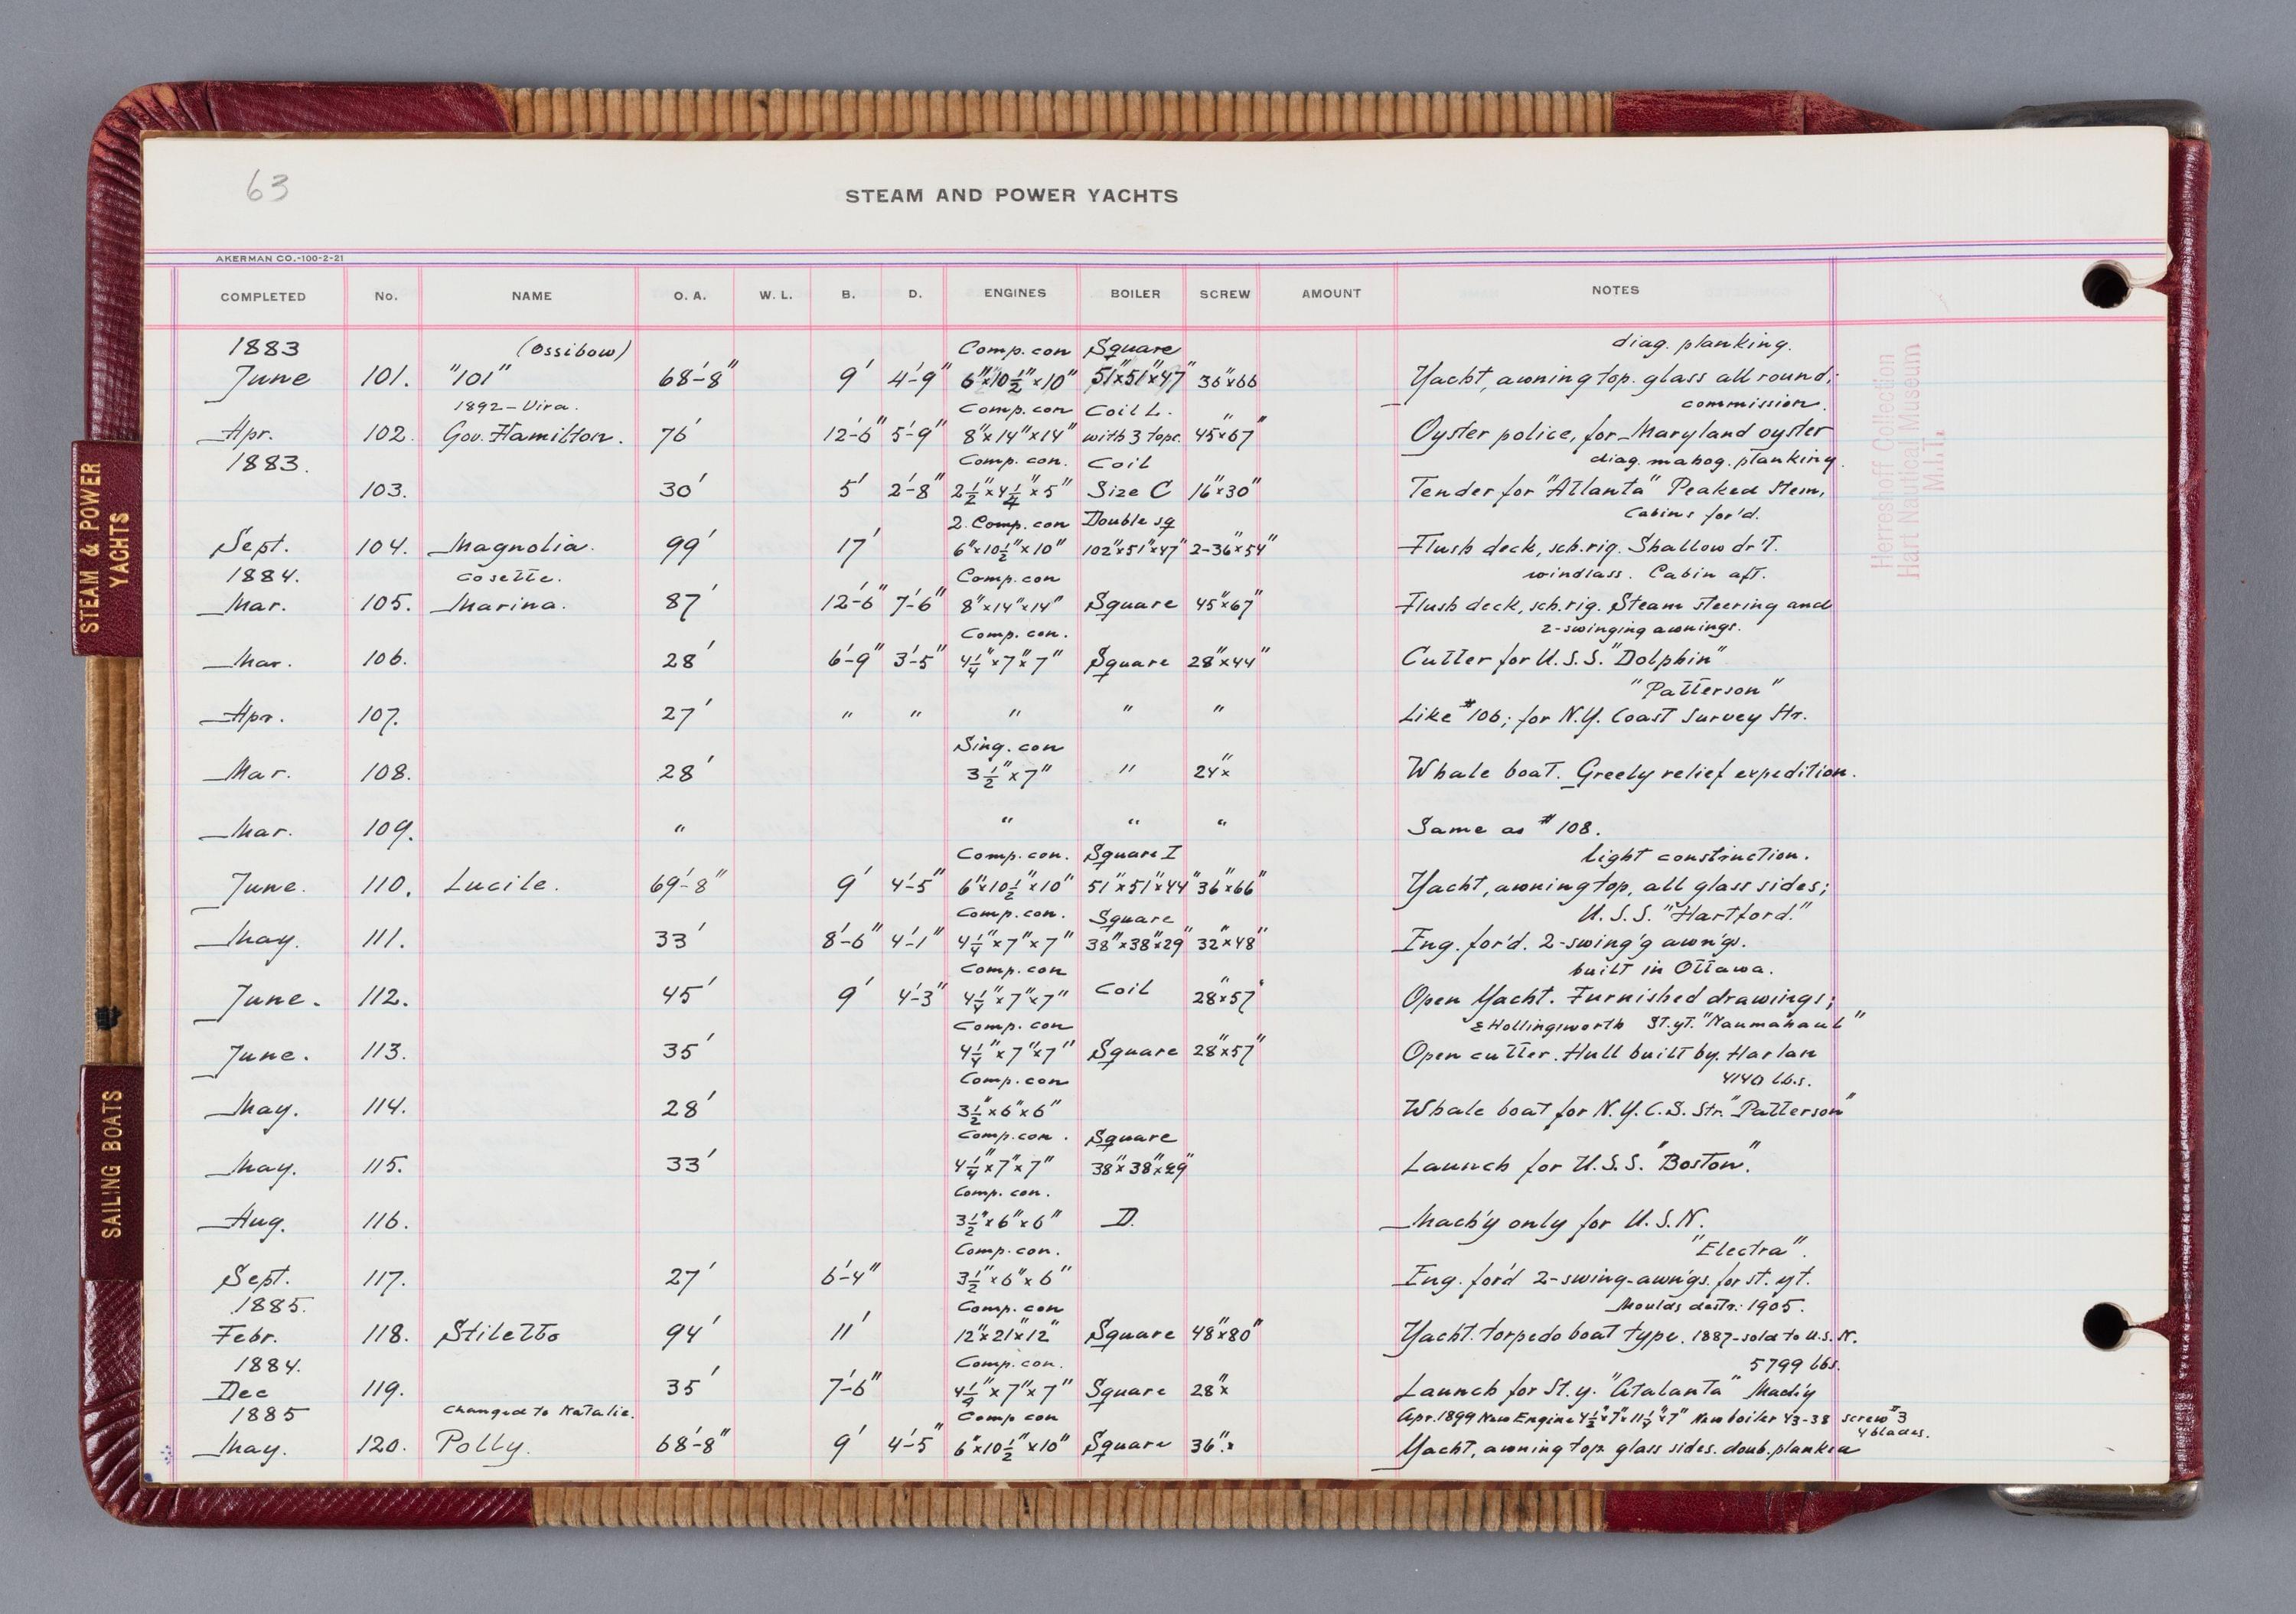 63
STEAM AND POWER YACHTS
AKERMAN CO.-100-2-21
COMPLETED No. NAME O. A. W. L. B. D. ENGINES BOILER SCREW AMOUNT NOTES
1883 (Ossibow) Comp. con Square diag. planking.
June 101. "101" 68'-8" 9' 4'-9" 6"x10½"x10" 51"x51"x47" 36"x66 Yacht, awning top. glass all round;
1892 - Vira. Comp. con Coil L. commission.
Apr. 102. Gov. Hamilton. 76' 12'-6" 5'-9" 8"x14"x14" with 3 tops. 45"x67" Oyster police, for Maryland oyster
1883. Comp. con. Coil diag. mahog. planking.
103. 30' 5' 2'-8" 2½"x4¼"x5" Size C 16"x30" Tender for "Atlanta" Peaked stem,
2. Comp. con Double sq Cabins for'd.
Sept. 104. Magnolia. 99' 17' 6"x10½"x10" 102"x51"x47" 2-36"x54" Flush deck, sch. rig. Shallow dr't.
1884. Cosette. Comp. con windlass. Cabin aft.
Mar. 105. Marina. 87' 12'-6" 7'-6" 8"x14"x14" Square 45"x67" Flush deck, sch. rig. Steam steering and
Comp. con. 2-swinging awnings.
Mar. 106. 28' 6'-9" 3'-5" 4¼"x7"x7" Square 28"x44" Cutter for U.S.S. "Dolphin"
"Patterson"
Apr. 107. 27' " " " " " Like #106; for N.Y. Coast Survey Str.
Sing. con
Mar. 108. 28' 3½"x7" " 24"x Whale boat. Greely relief expedition.
Mar. 109. " " " " Same as #108.
Comp. con. Square I light construction.
June. 110. Lucile. 69'-8" 9' 4'-5" 6"x10½"x10" 51"x51"x44" 36"x66" Yacht, awning top, all glass sides;
Comp. con. Square U.S.S. "Hartford."
May. 111. 33' 8'-6" 4'-1" 4¼"x7"x7" 38"x38"x29" 32"x48" Eng. for'd. 2-swing'g awn'gs.
Comp. con built in Ottawa.
June. 112. 45' 9' 4'-3" 4¼"x7"x7" Coil 28"x57" Open Yacht. Furnished drawings;
Comp. con & Hollingsworth St. yt. "Naumahaul"
June. 113. 35' 4¼"x7"x7" Square 28"x57" Open cutter. Hull built by Harlan
Comp. con 4140 lbs.
May. 114. 28' 3½"x6"x6" Whale boat for N.Y.C.S. Str. "Patterson"
Comp. con. Square
May. 115. 33' 4¼"x7"x7" 38"x38"x29" Launch for U.S.S. "Boston".
Comp. con.
Aug. 116. 3½"x6"x6" D. Mach'y only for U.S.N.
Comp. con. "Electra".
Sept. 117. 27' 6'-4" 3½"x6"x6" Eng. for'd 2-swing-awn'gs. for st. yt.
1885. Comp. con Moulds destr: 1905.
Febr. 118. Stiletto 94' 11' 12"x21"x12" Square 48"x80" Yacht. torpedo boat type. 1887-sold to U.S.N.
1884. Comp. con. 5799 lbs.
Dec 119. 35' 7'-6" 4¼"x7"x7" Square 28"x Launch for St. y. "Atalanta" Mach'y
1885 Changed to Natalie. Comp con Apr. 1899 New Engine 4½"x7"x11¼"x7" New boiler 43-38 screw #3
4 blades.
May. 120. Polly. 68'-8" 9' 4'-5" 6"x10½"x10" Square 36"x Yacht, awning top. glass sides. doub. planked
Herreshoff Collection
Hart Nautical Museum
M.I.T.
STEAM & POWER
YACHTS
SAILING BOATS